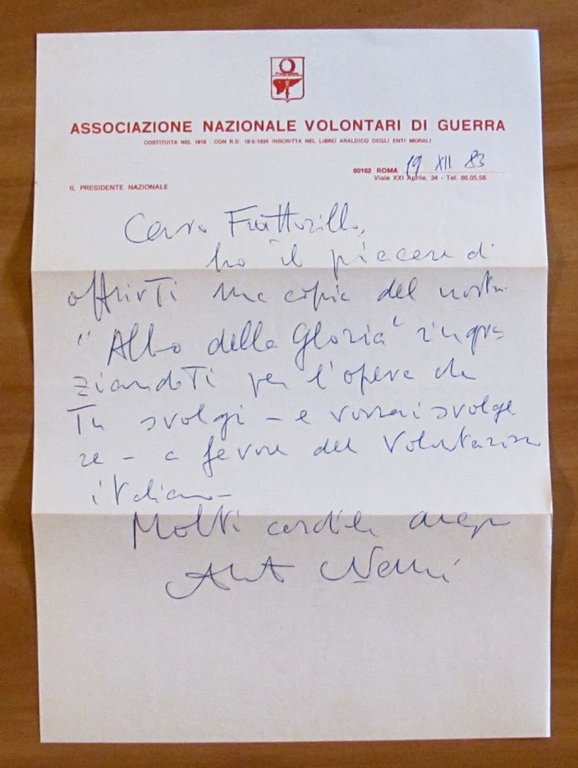 ASSOCIAZIONE NAZIONALE VOLONTARI DI GUERRA
COSTITUITA NEL 1919 - CON R.D. 18-5-1934 INSCRITTA NEL LIBRO ARALDICO DEGLI ENTI MORALI
00162 ROMA 19 XII 83
Viale XXI Aprile, 34 - Tel. 86.05.56
IL PRESIDENTE NAZIONALE
Caro
ho il piacere di
offrirti una copia del nostro
"Albo della Gloria" ringra
ziandoti per l'opera che
Tu svolgi - e vorrai svolge
re - a favore del Volontarismo
italiano -
Molti cordiali auguri